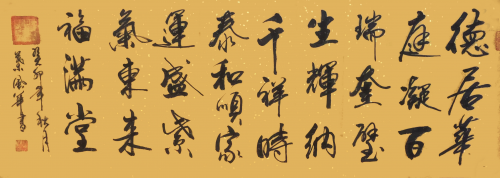 德居華
庭凝百
瑞奎璧
生輝納
千祥時
泰和順家
運盛紫
氣東來
福滿堂
癸卯年秋月
華書